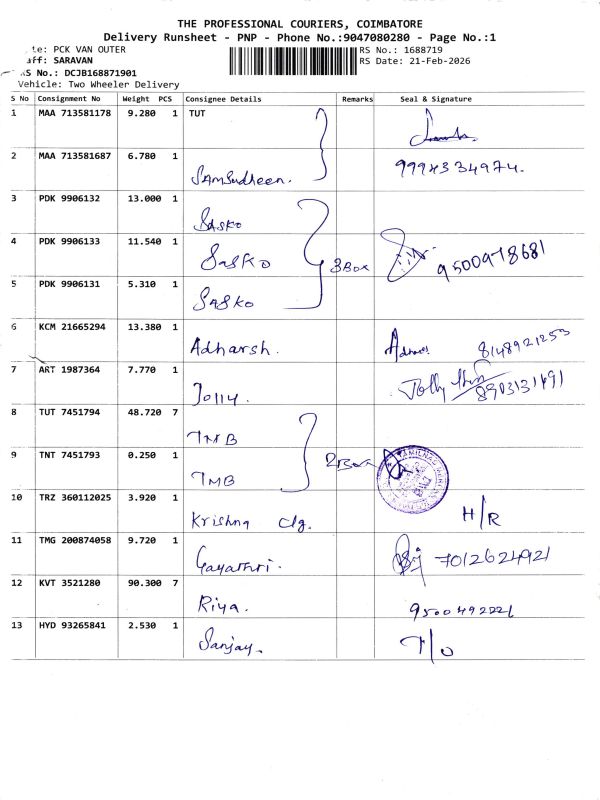 THE PROFESSIONAL COURIERS, COIMBATORE
Delivery Runsheet - PNP - Phone No.:9047080280 - Page No.:1
te: PCK VAN OUTER
RS No.: 1688719
aff: SARAVAN
RS Date: 21-Feb-2026
RS No.: DCJB168871901
Vehicle: Two Wheeler Delivery
S No Consignment No Weight PCS Consignee Details Remarks Seal & Signature
1 MAA 713581178 9.280 1 TUT
2 MAA 713581687 6.780 1 Samsudheen. 9994334974.
3 PDK 9906132 13.000 1 Sasko
4 PDK 9906133 11.540 1 Sasko 3 Box 9500978681
5 PDK 9906131 5.310 1 Sasko
6 KCM 21665294 13.380 1 Adharsh. 8148921253
7 ART 1987364 7.770 1 Jolly. Jolly 8903131691
8 TUT 7451794 48.720 7 TMB
9 TNT 7451793 0.250 1 TMB 2 Box
10 TRZ 360112025 3.920 1 Krishna Clg. H/R
11 TMG 200874058 9.720 1 Gayathri. 7012624921
12 KVT 3521280 90.300 7 Riya. 9500492221
13 HYD 93265841 2.530 1 Sanjay. T/O